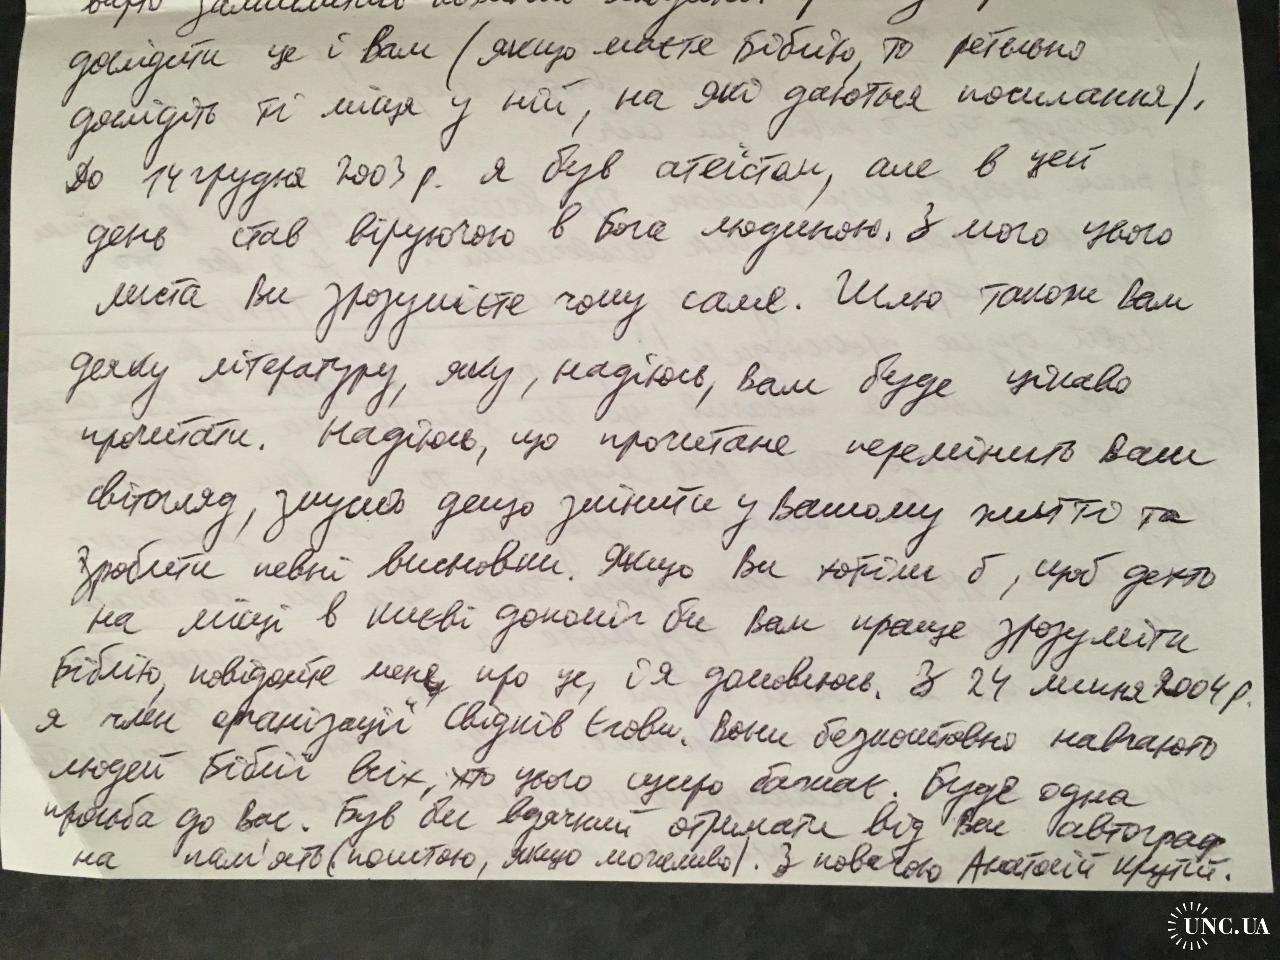 дослідити це і Вам (якщо маєте Біблію, то ретельно
дослідіть ті місця у ній, на які даються посилання).
До 14 грудня 2003 р. я був атеїстом, але в цей
день став віруючою в Бога людиною. З мого цього
листа Ви зрозумієте чому саме. Шлю також Вам
деяку літературу, яку, надіюсь, Вам буде цікаво
прочитати. Надіюсь, що прочитане перемінить Ваш
світогляд, змусить дещо змінити у Вашому житті та
зробити певні висновки. Якщо Ви хотіли б, щоб дехто
на місці в Києві допоміг би Вам краще зрозуміти
Біблію, повідомте мене, про це, і я домовлюсь. З 24 липня 2004 р.
я член організації Свідків Єгови. Вони безкоштовно навчають
людей Біблії всіх, хто цього щиро бажає. Буде одна
просьба до Вас. Був би вдячний отримати від Вас автограф
на пам'ять (поштою, якщо можливо). З повагою Анатолій Крутій.
UNC.UA